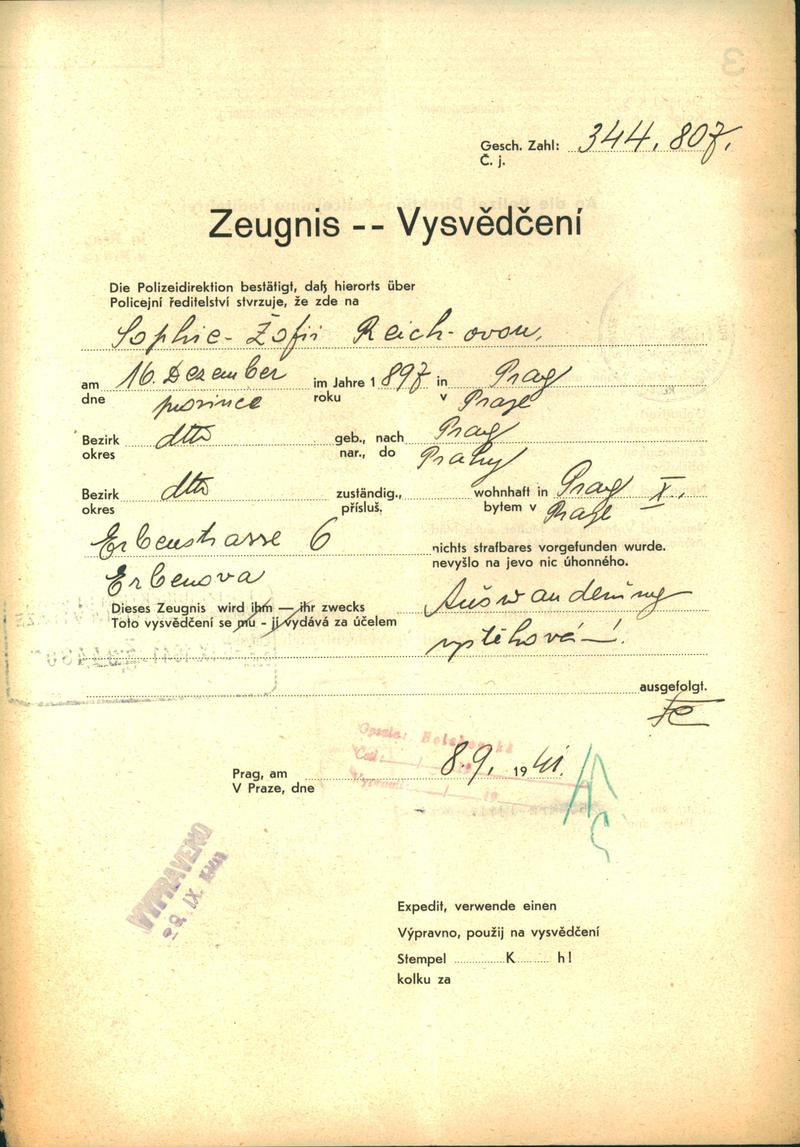 Gesch. Zahl: 344.807.
Č. j.
Zeugnis -- Vysvědčení
Die Polizeidirektion bestätigt, daß hierorts über
Policejní ředitelství stvrzuje, že zde na
Sophie - Žofii Reich-ovou,
am 16. Dezember im Jahre 1897 in Prag
dne prosince roku v Praze
Bezirk dtto geb., nach Prag
okres nar., do Prahy
Bezirk dtto zuständig., wohnhaft in Prag X.,
okres přísluš. bytem v Praze
Erbenstrasse 6 nichts strafbares vorgefunden wurde.
Erbenova nevyšlo na jevo nic úhonného.
Dieses Zeugnis wird ihm — ihr zwecks Auswanderung
Toto vysvědčení se mu - jí vydává za účelem
vystěhování.
ausgefolgt.
Opsala: Bolehovská
Čet:
Vypravil: / 19
Prag, am 8.9. 1941.
V Praze, dne
VYPRAVENO
IX. 1941
Expedit, verwende einen
Výpravno, použij na vysvědčení
Stempel K h!
kolku za